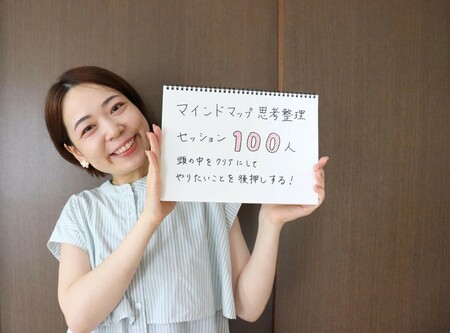 マインドマップ思考整理
セッション100人
頭の中をクリアにして
やりたいことを後押しする！